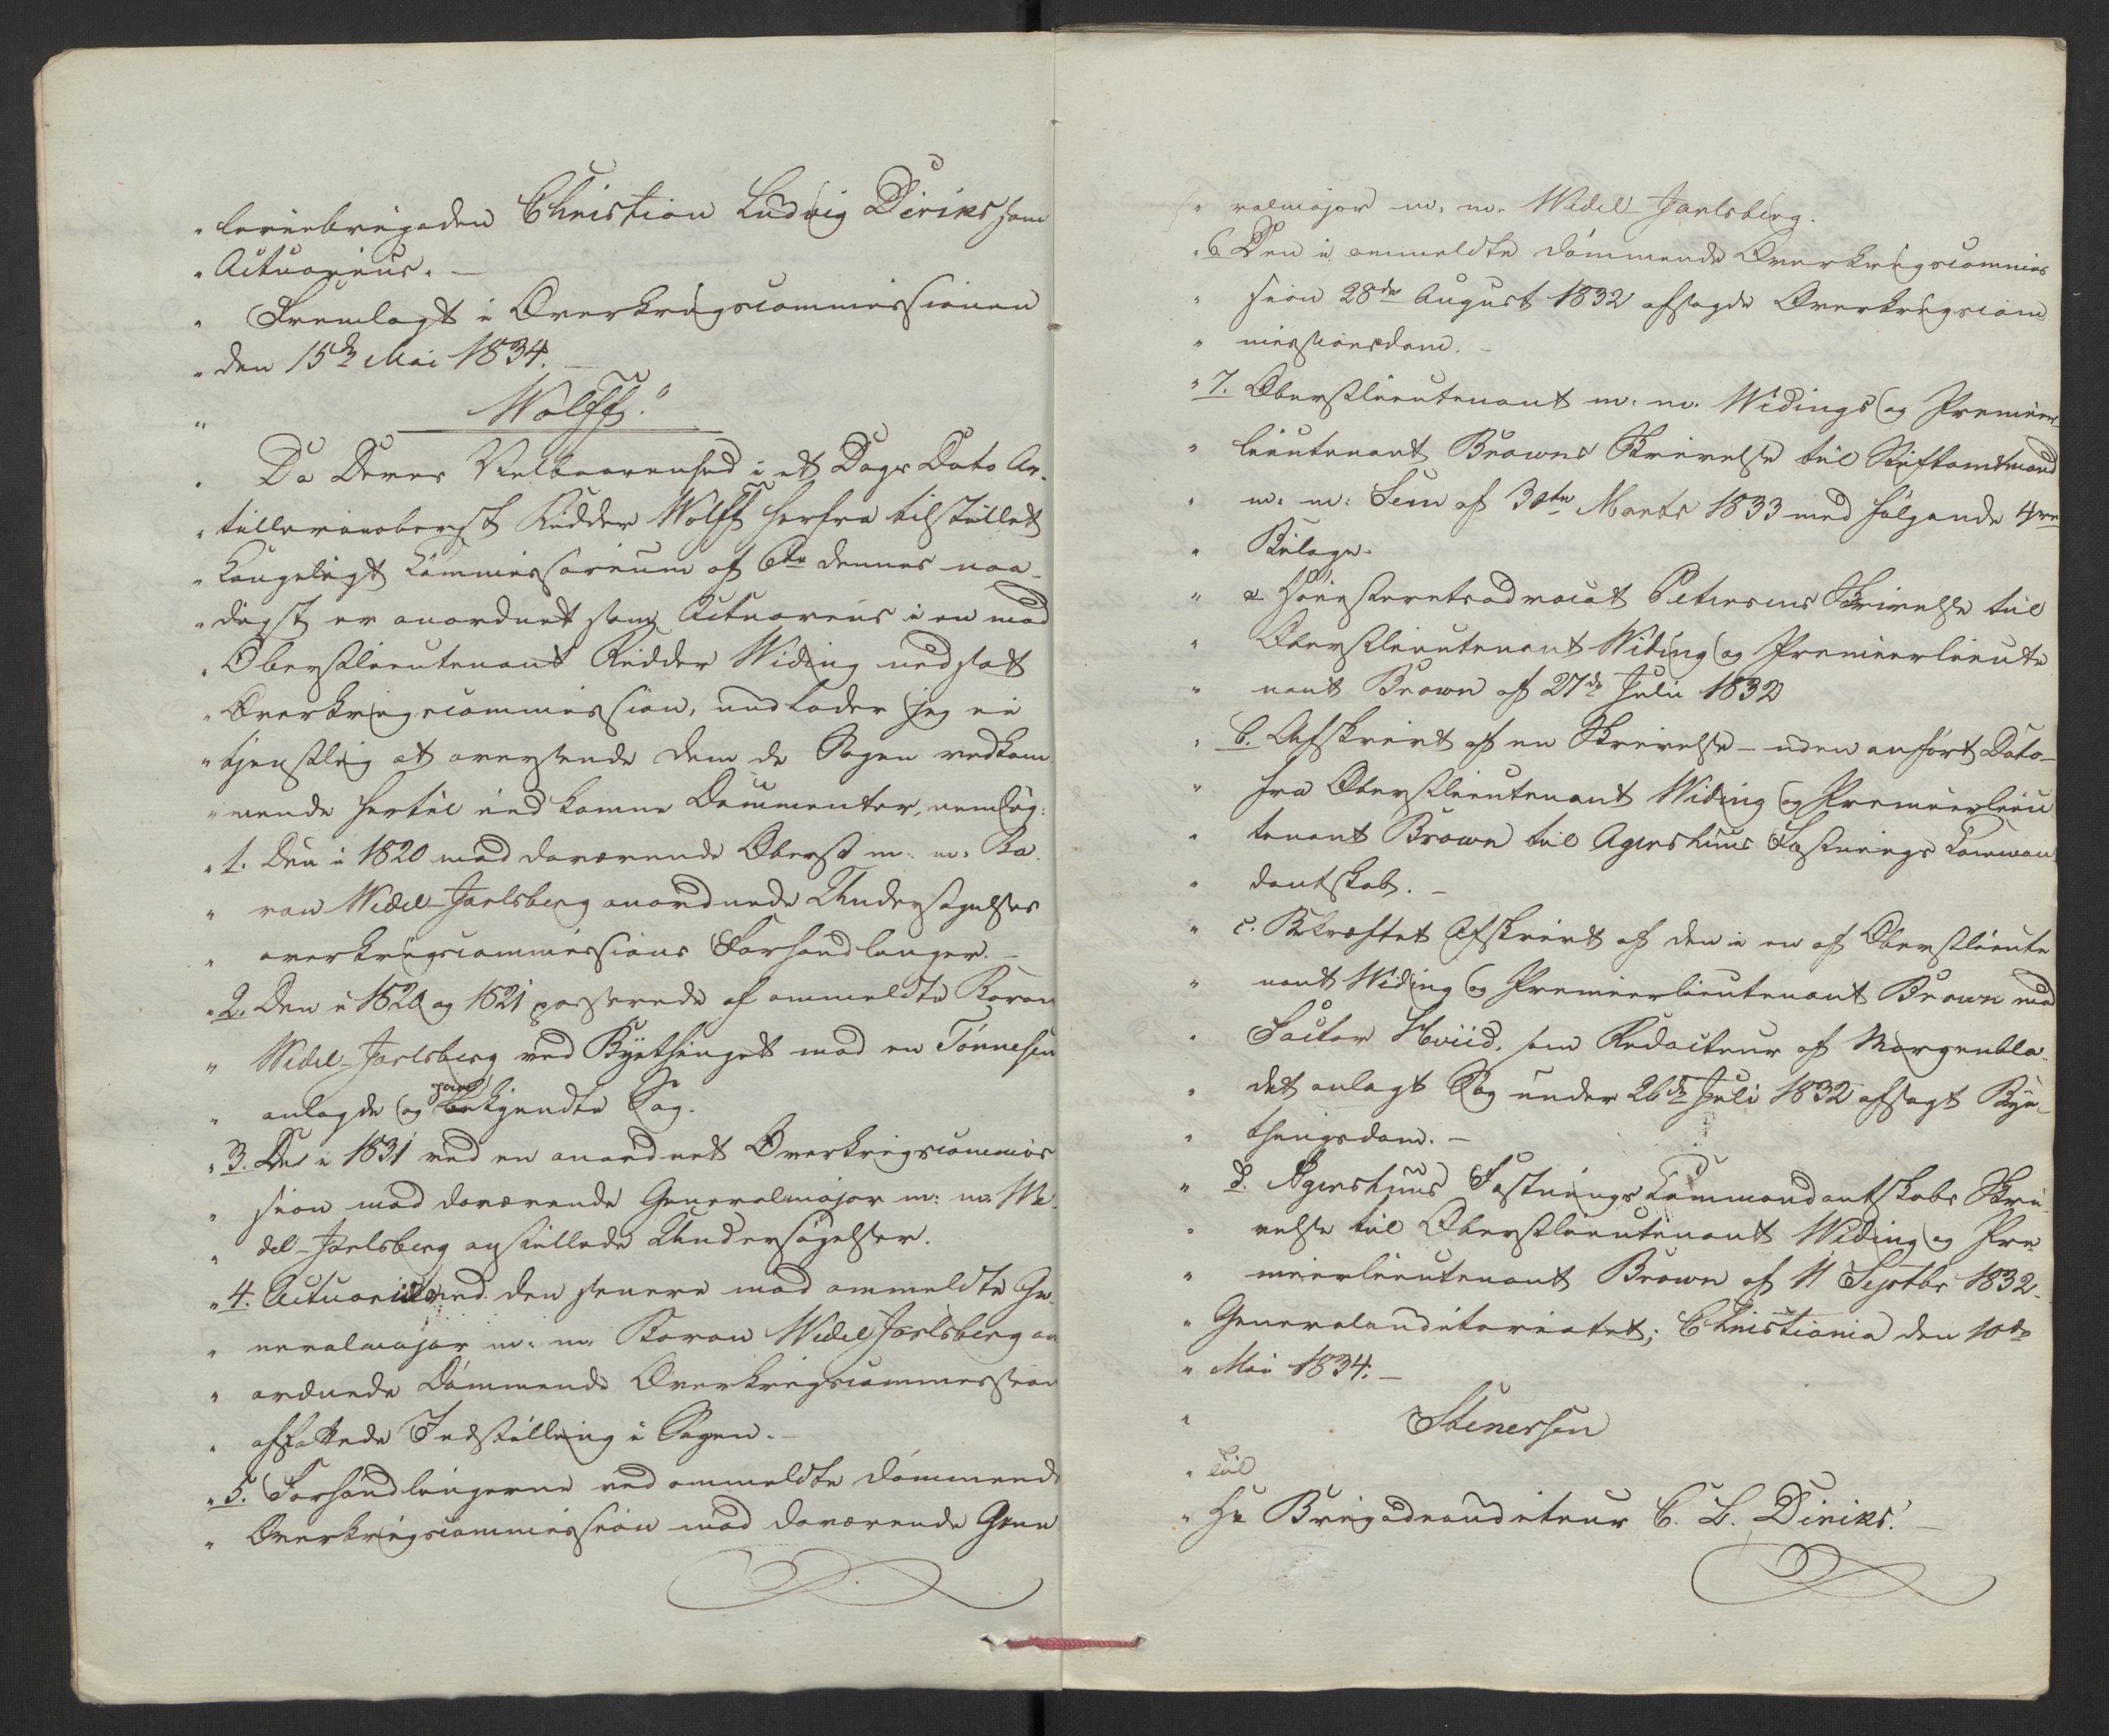 " leriebrigaden Christian Ludvig Diriks som
" Actuarius. —
" Fremlagt i Overkrigscommissionen
" den 15de Mai 1834. —
" Wolff."
" Da Deres Velbaarenhed i et Dags Dato Ar-
" tillerieoberst Ridder Wolff herfra tilstillet
" Kongeligt Commissorium af 6te dennes naa-
" digst er anordnet som Actuarius i en mod
" Oberstlieutenant Ridder Widing nedsat
" Overkrigscommission, undlader jeg ei
" tjenstlig at oversende Dem de Sagen vedkom-
" mende hertil indkomne Documenter, nemlig:
" 1. Den i 1820 mod daværende Oberst m: m: Ba-
" ron Wedel-Jarlsberg anordnede Undersøgelses
" overkrigscommissions Forhandlinger. —
" 2. Den i 1820 og 1821 passerede af ommeldte Baron
" Wedel-Jarlsberg ved Byethinget mod en Tønnesen
" anlagde og paakjendte Sag.
" 3. De i 1831 ved en anordnet Overkrigscommis
" sion mod daværende Generalmajor m: m: We-
" del-Jarlsberg anstillede Undersøgelser.
" 4. Actuarii ved den senere mod ommeldte Ge-
" neralmajor m: m: Baron Wedel Jarlsberg an
" ordnede dømmende Overkrigscommission
" affattede Indstilling i Sagen. —
" 5. Forhandlingerne ved ommeldte dømmende
" Overkrigscommission mod daværende Gene
" ralmajor m: m: Wedel-Jarlsberg.
" 6 Den i ommeldte dømmende Overkrigscommis
" sion 28de August 1832 afsagde Overkrigscom
" missionsdom. —
" 7. Oberstlieutenant m: m: Widings og Premier-
" lieutenant Browns Skrivelse til Stiftamtmand
" m: m: Sem af 30te Marts 1833 med følgende 4re
" Bilage.
" a Høiesteretsadvocat Petersens Skrivelse til
" Oberstlieutenant Widing og Premierlieute
" nant Brown af 27de Juli 1832
" b. Afskrivt af en Skrivelse – uden anført Dato –
" fra Oberstlieutenant Widing og Premierlieu
" tenant Brown til Agershuus Fæstnings Comman
" dantskab. —
" c. Bekræftet Afskrivt af den i en af Oberstlieute
" nant Widing og Premierlieutenant Brown mod
" Factor Hviid, som Redacteur af Morgenbla-
" det anlagt Sag under 26de Juli 1832 afsagt Bye-
" thingsdom. —
" d. Agershuus Fæstnings Commandantskabs Skri-
" velse til Oberstlieutenant Widing og Pre
" mierlieutenant Brown af 11 Septbr 1832.
" Generalauditoriatet; Christiania den 10de
" Mai 1834. —
" Stenersen
" Til
" Hr Brigadeauditeur C. L. Diriks. —